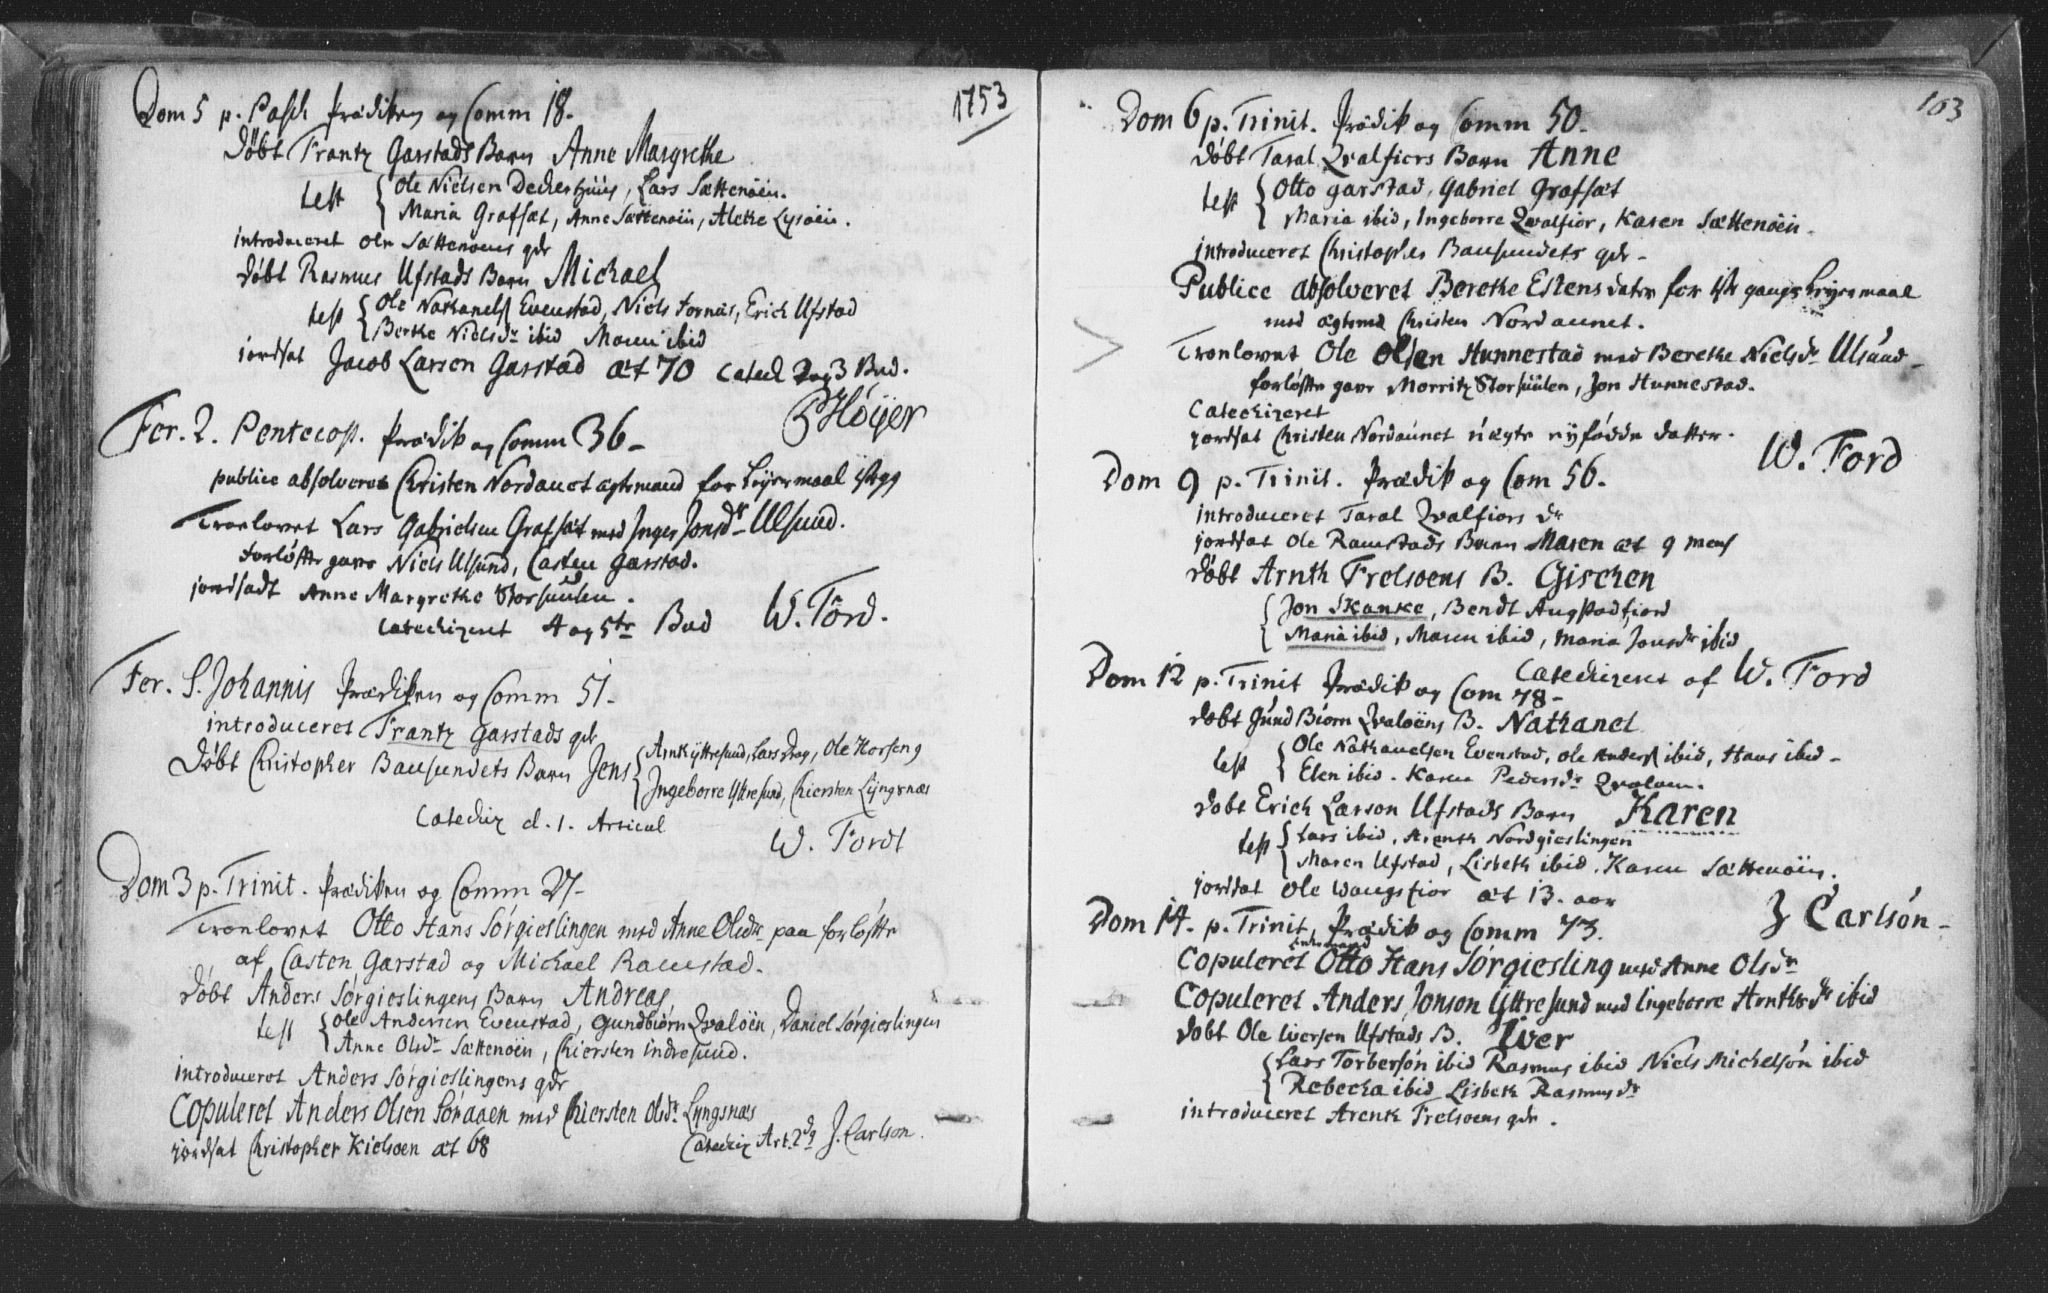 1753
Dom 5 p. Pasch Prædiken og Comm 18.
Døbt Frantz Garstads Barn Anne Margrethe
test Ole Nielsen Deckerhuus, Lars Sættenøen.
Maria Grafsæt, Anne Sættenøen, Alethe Lysøen.
introduceret Ole Sættenøens qde
døbt Rasmus Ufstads Barn Michael
test Ole Nathanels Evenstad, Niels Fornæs, Erich Ufstad
Berthe Nielsdr ibid Maren ibid
jordsat Jacob Larsen Garstad æt 70 Catech 2 og 3 Bud.
Høyer
Fer. 2. Pentecost. Prædik og Comm 36-
publice absolveret Christen Nordaunet ægtemand for Leyermaal
Troelovet Lars Gabrielsen Grafsæt med Inger Jonsdr Ulsund.
forløfte gave Niels Ulsund, Casten Garstad.
jordsadt Anne Margrethe Storsuulen.
Catechizeret 4 og 5te Bud W. Ford.
Fer. S. Johannis Prædiken og Comm 51-
introduceret Frantz Garstads qde
Døbt Christopher Bausundets Barn Jens Arnt yttresund, Lars Drag, Ole Horseng
Ingeborre Yttresund, Chiersten Lyngsnæs
Catechiz d. 1. Articul
W. Fordt
Dom 3 p. Trinit. Prædiken og Comm 27-
Troelovet Otto Hans Sørgieslingen med Anne Olsdr paa forløfte
af Casten Garstad og Michael Ramstad.
døbt Anders Sørgieslingens Barn Andreas
test Ole Andersen Evenstad, Gundbiørn Qvaløen, Daniel Sørgieslingen
Anne Olsdr Sættenøen, Chiersten indresund.
introduceret Anders Sørgieslingens qde
Copuleret Anders Olsen Søraaen med Chiersten Olsdr Lyngsnæs
jordsat Christopher Kielsøen æt 68 Catechiz Art. 2d J. Carlson.
103
Dom 6 p. Trinit. Prædik og Comm 50-
døbt Taral Qvalfiors Barn Anne
test Otto Garstad, Gabriel Grafsæt
Maria ibid, Ingeborre Qvalfior, Karen Sættenøen.
introduceret Christopher Bausundets qde-
Publice absolveret Berethe Estensdater for 1ste gangs Leyermaal
med ægtemd Christen Nordaunet.
Troelovet Ole Olsen Hunnestad med Berethe Nielsdr Ulsund-
forløfte gave Morritz Storsuulen, Jon Hunnestad.
Catechizeret
jordsat Christen Nordaunet uægte nyfødde datter.
W. Ford
Dom 9 p. Trinit. Prædik og Com 56.
introduceret Taral Qvalfiors qde
jordsat Ole Ramstads Barn Maren æt 9 mens
døbt Arnth Frelsøens B. Gischen
Jon Skanke, Bendt Augstadfiord
Maria ibid, Maren ibid, Maria Jonsdr ibid
Catechizeret af W. Ford
Dom 12 p. Trinit Prædik og Com 78-
døbt Gundbiørn Qvaløens B. Nathanel
test Ole Nathanelsen Evenstad, Ole Anders ibid, Hans ibid-
Elen ibid. Karen Pedersdr Qvaløen.
døbt Erich Larson Ufstads Barn Karen
test Lars ibid, Arenth Nordgieslingen
Maren Ufstad, Lisbeth ibid. Karen Sættenøen.
jordsat Ole Wangsfior æt 13. aar
J Carlson-
Dom 14. p. Trinit, Prædik og Comm 73.
Copuleret Otto Hans Sørgiesling med Anne Olsdr
Copuleret Anders Jonson Yttresund med Ingeborre Arnthsdr ibid
døbt Ole Iversen Ufstads B. Iver
Lars Torberson ibid Rasmus ibid Niels Michelson ibid
Rebecka ibid Lisbeth Rasmusdr
introduceret Arenth Frelsøens qde.